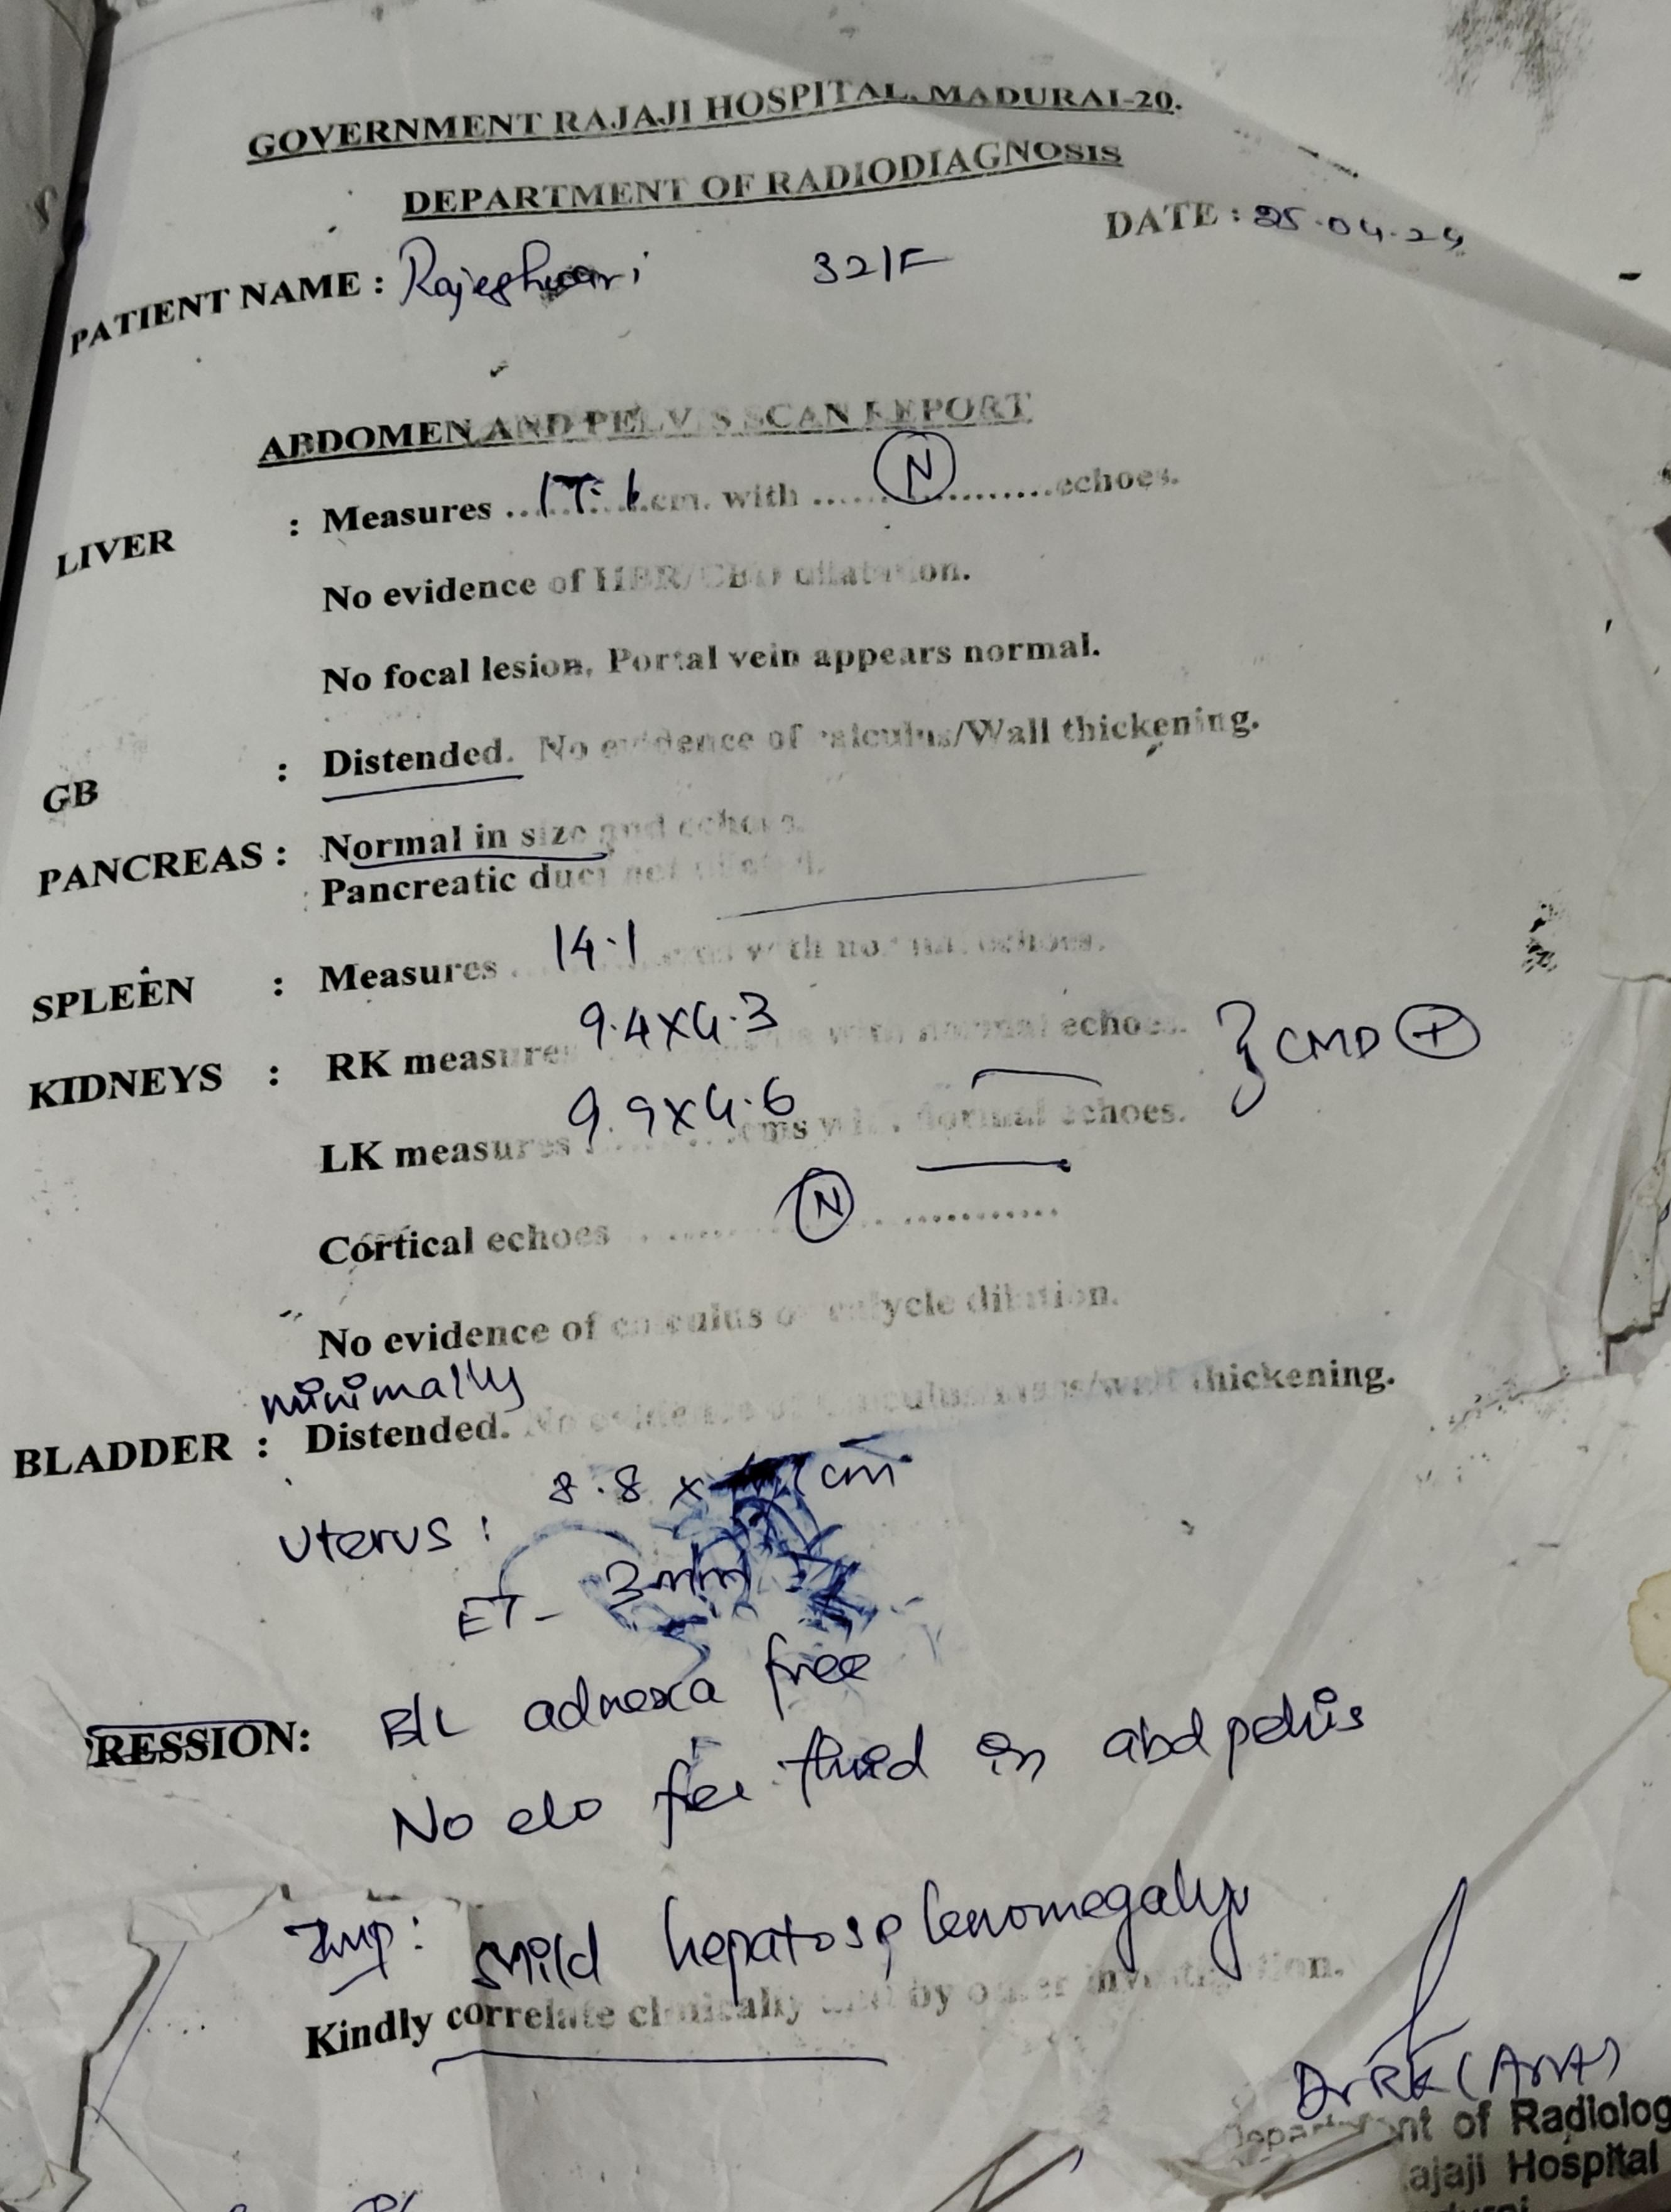 GOVERNMENT RAJAJI HOSPITAL, MADURAI-20.
DEPARTMENT OF RADIODIAGNOSIS
DATE : 25.04.24
PATIENT NAME : Rajeshwari 32/F
ABDOMEN AND PELVIS SCAN REPORT
LIVER : Measures ...17.1...cm. with ......(N)..........echoes.
No evidence of IHBR/CBD dilatation.
No focal lesion, Portal vein appears normal.
GB : Distended. No evidence of calculus/Wall thickening.
PANCREAS : Normal in size and echoes.
Pancreatic duct not dilated.
SPLEEN : Measures 14.1 cms with normal echoes.
KIDNEYS : RK measures 9.4x4.3 cms with normal echoes. } CMD (+)
LK measures 9.9x4.6 cms with normal echoes.
Cortical echoes ........(N)............
No evidence of calculus or calycle dilation.
minimally
BLADDER : Distended. No evidence of calculus/mass/wall thickening.
Uterus : 8.8 x cm
ET - 3mm
RESSION: B/L adnexa free
No e/o free fluid in abd pelvis
Imp: Mild hepatosplenomegaly
Kindly correlate clinically and by other investigation.
Dr RK
Department of Radiolog
ajaji Hospital